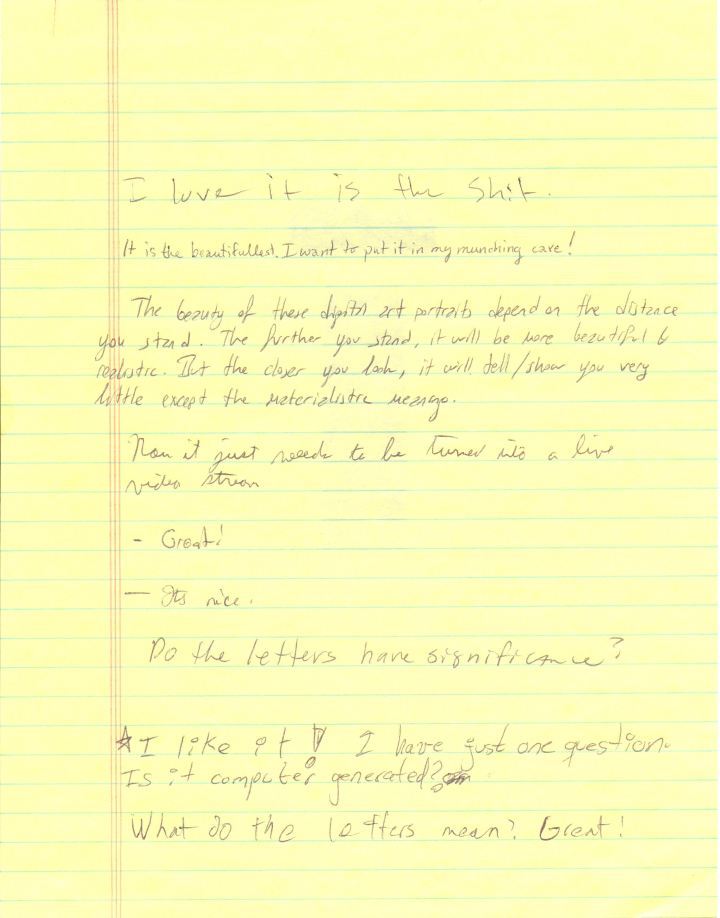 I love it is the shit.
It is the beautifullest. I want to put it in my munching cave!
The beauty of these digital art portraits depend on the distance
you stand. The further you stand, it will be more beautiful &
realistic. But the closer you look, it will tell/show you very
little except the materialistic message.
Now it just needs to be turned into a live
video stream
- Great!
— Its nice.
Do the letters have significance?
☆I like it! I have just one question.
Is it computer generated?
What do the letters mean? Great!